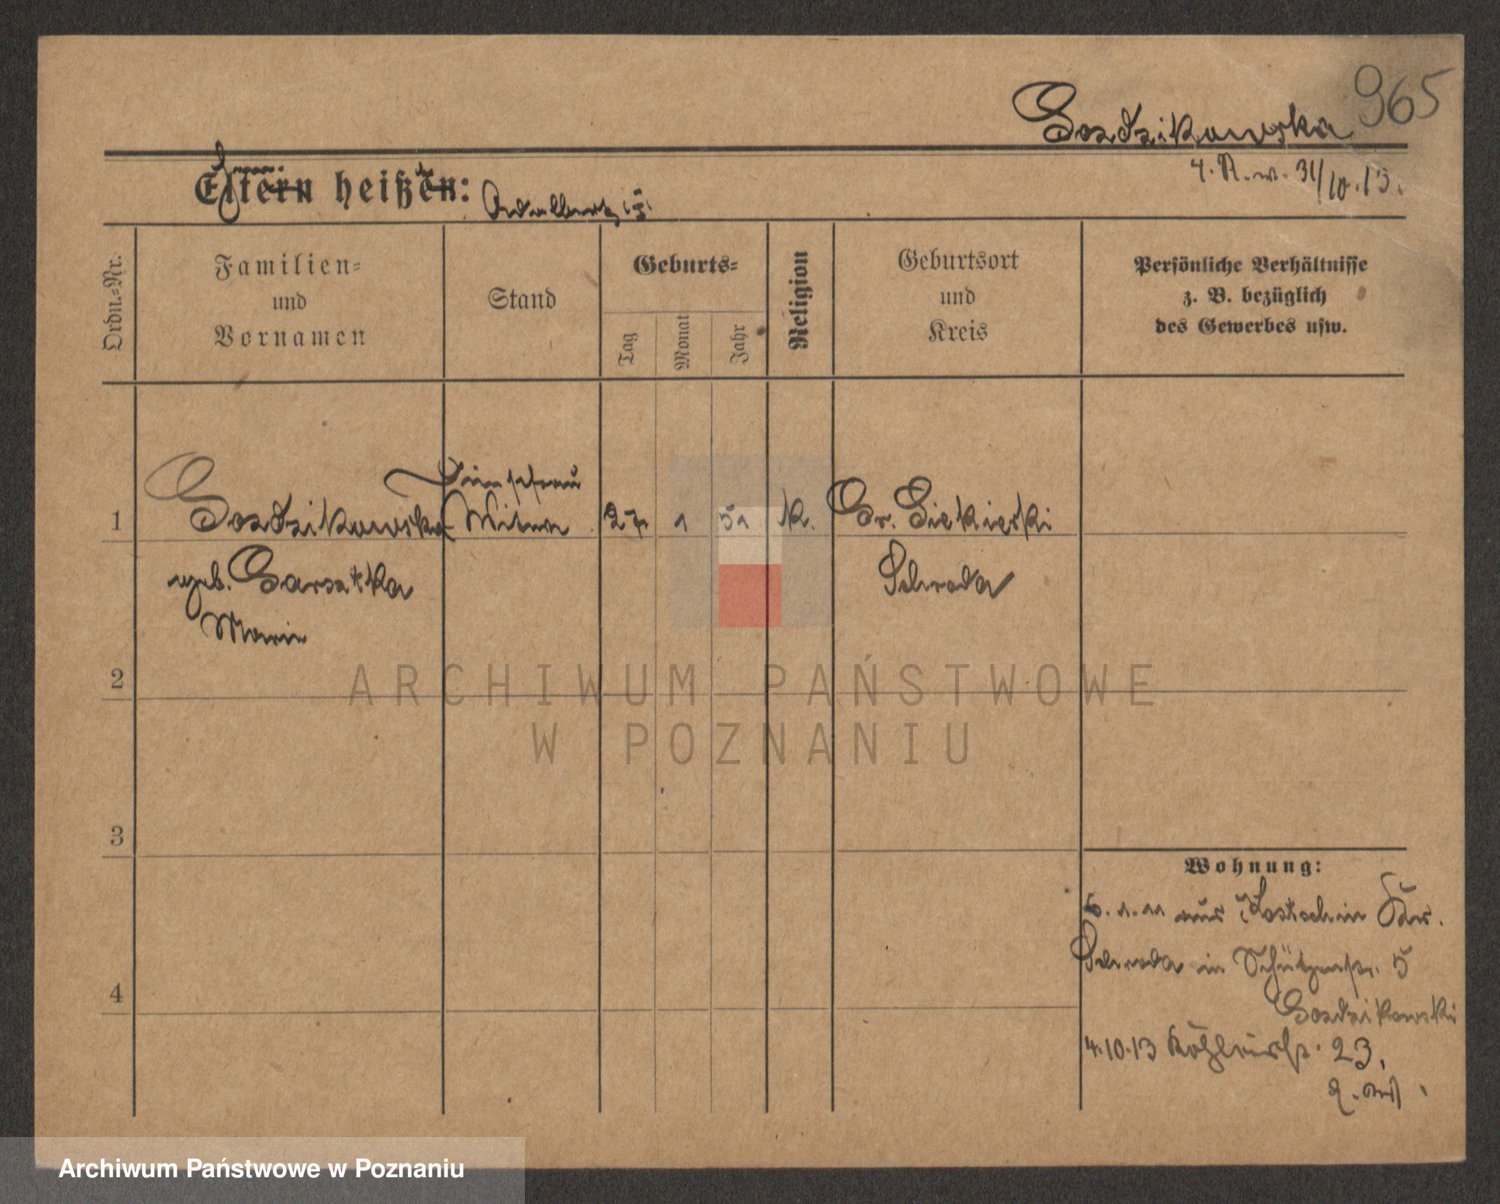 965
Gozdzikowska
4. A. w. 31/10.13.
Eltern heißen:
Familien=
und
Vornamen
Stand
Geburts=
Religion
Geburtsort
und
Kreis
Persönliche Verhältnisse
z. B. bezüglich
des Gewerbes usw.
Ordn.=Nr.
Tag
Monat
Jahr
1
Gozdzikowska
Witwe
27
1
51
k.
Gr. Siekierki
geb. Garsztka
Schroda
Marie
2
ARCHIWUM PAŃSTWOWE
W POZNANIU
3
Wohnung:
5.1.11 aus Kostschin Kr.
Schroda in Schützenstr. 5
4
Gozdzikowski
4.10.13 23,
Archiwum Państwowe w Poznaniu